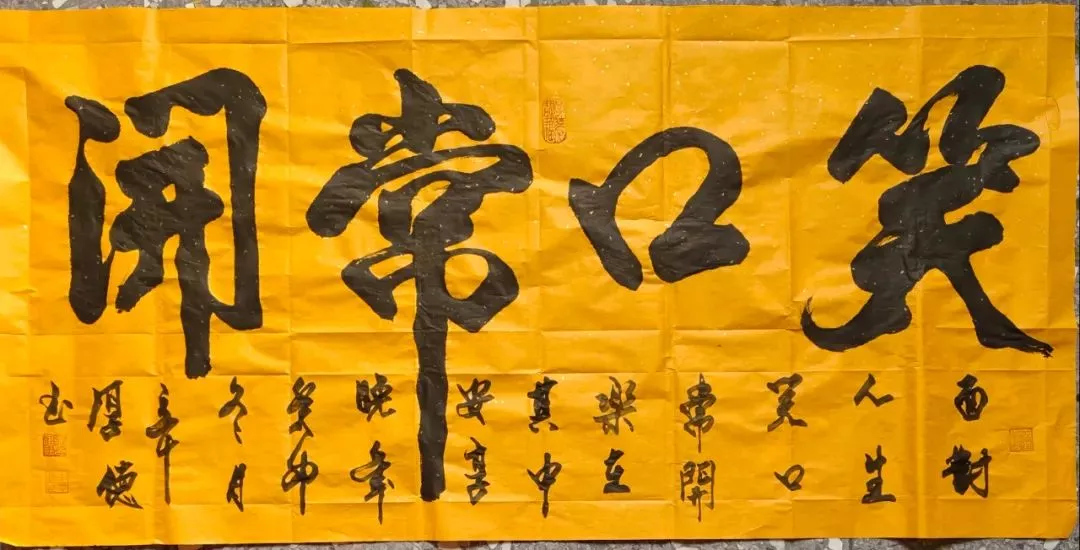 笑口常開
面對
人生
笑口
常開
樂在
其中
安享
晚年
癸卯
冬月
厚德